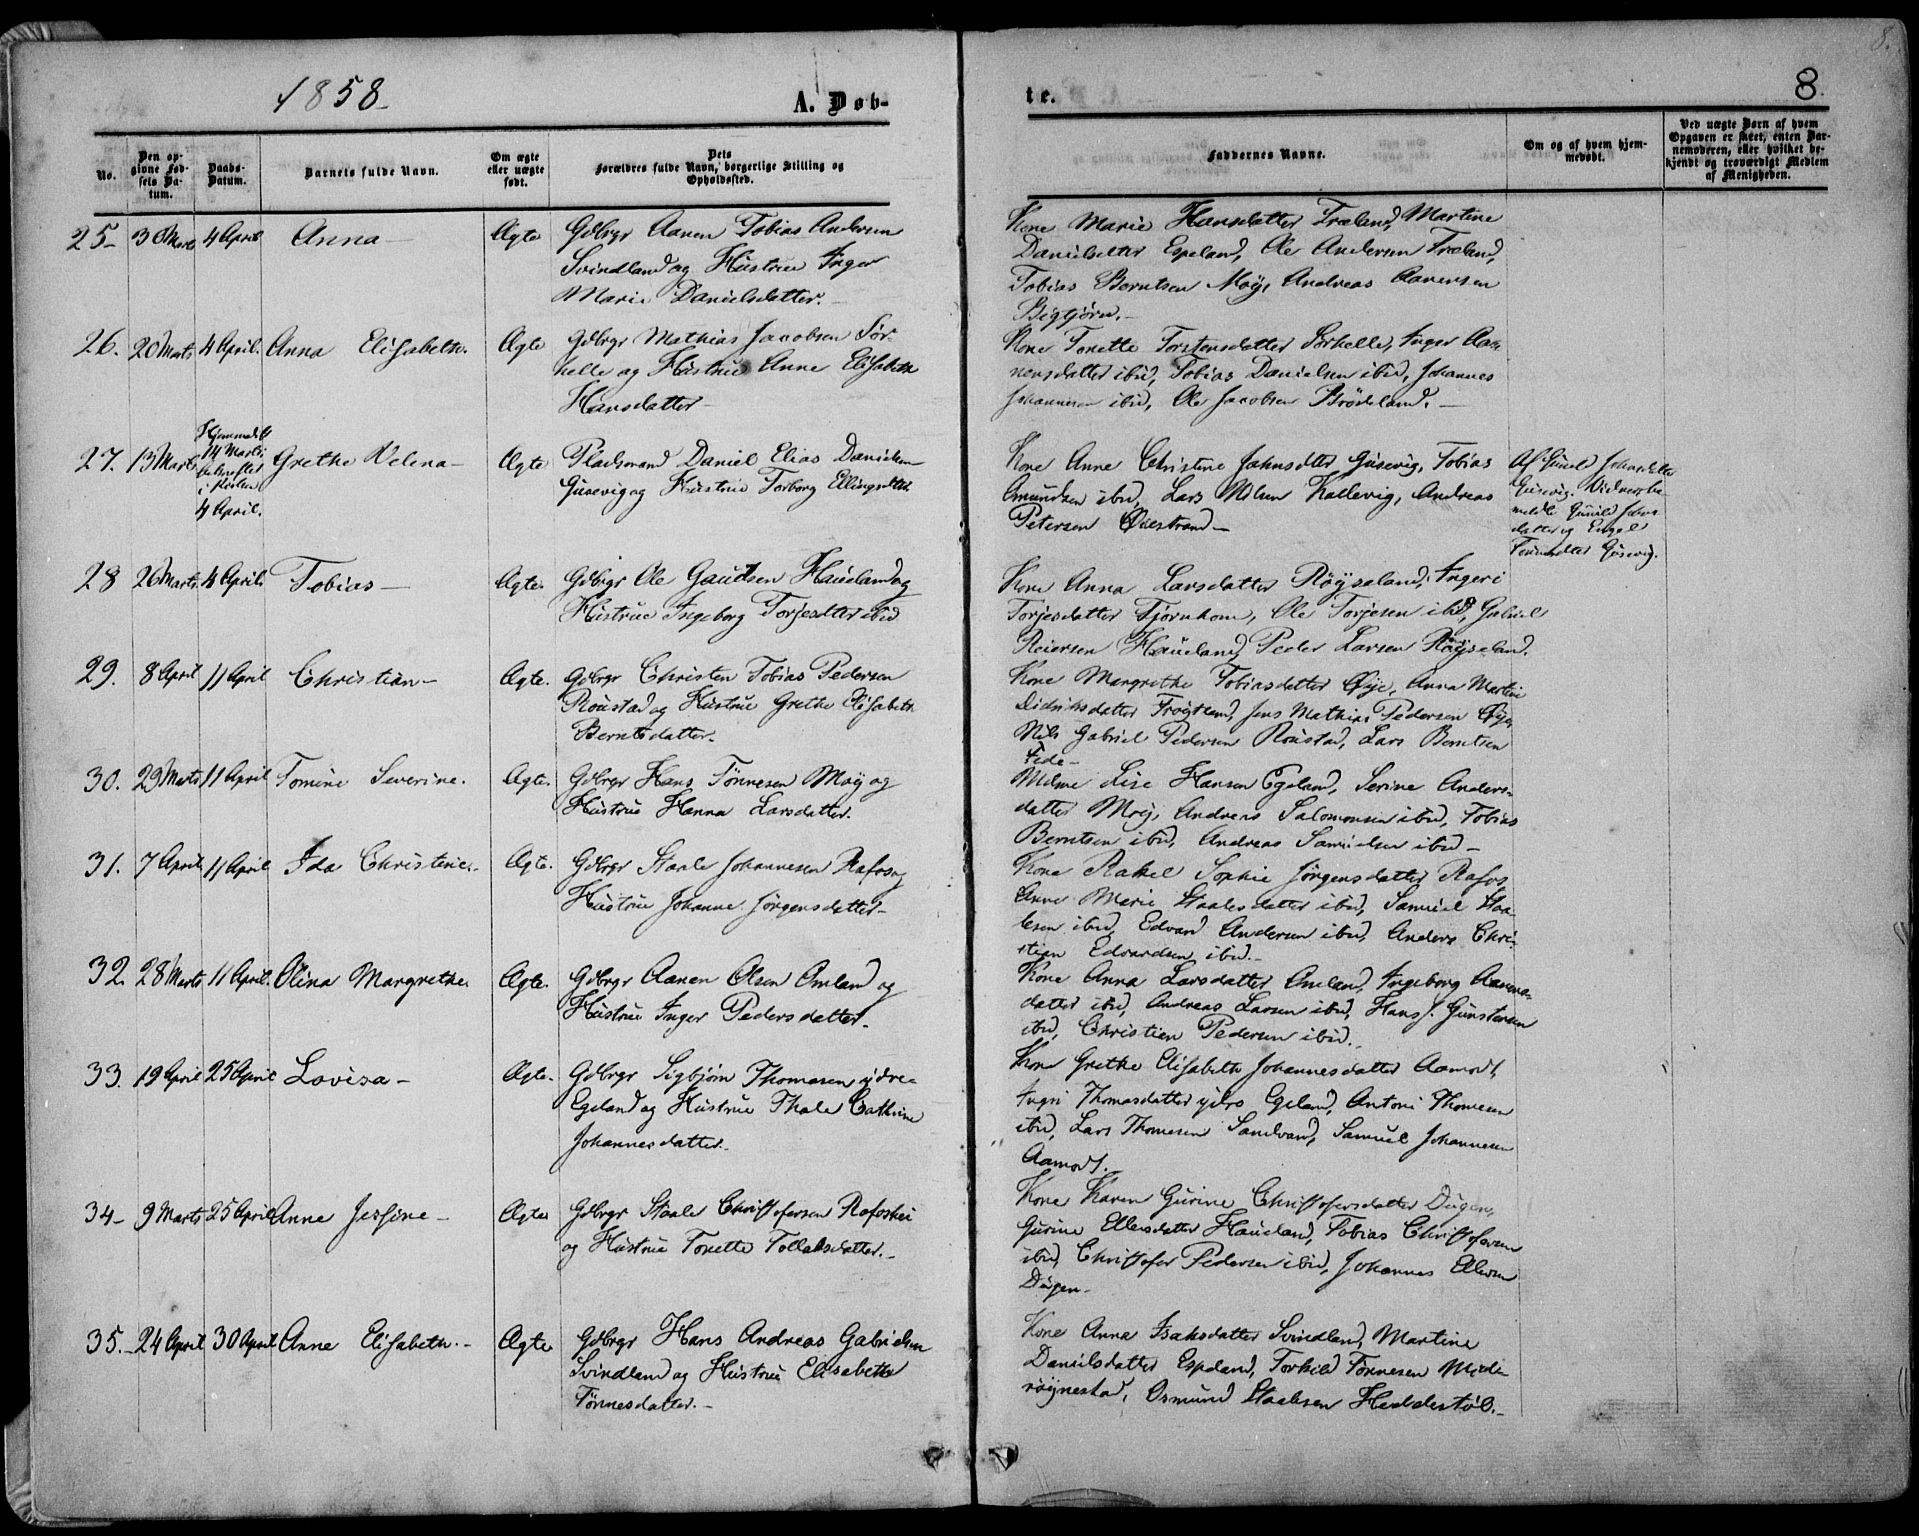 1858
A. Døb-
te.
8.
8.
No.
Den op-
givne Fød-
sels Da-
tum.
Daabs-
Datum.
Barnets fulde Navn.
Om ægte
eller uægte
født.
Dets
Forældres fulde Navn, borgerlige Stilling og
Opholdssted.
Faddernes Navne.
Om og af hvem hjem-
medøbt.
Ved uægte Børn af hvem
Opgaven er skeet, enten Bar-
nemoderen, eller hvilket be-
kjendt og troværdigt Medlem
af Menigheden.
25- 30 Marts 4 April Anna- Ægte Gdbrgr Aanen Tobias Andersen
Svindland og Hustrue Inger
Marie Danielsdatter.-
Kone Marie Hansdatter Træland, Martine
Danielsdtter Espeland, Ole Andersen Træland,
Tobias Berntsen Moÿ, Andreas Aanensen
Bigtjörn.-
26. 20 Marts 4 April. Anna Elisabeth. Ægte Gdbrgr Mathias Jacobsen Sör-
helle og Hustrue Anne Elisabeth
Hansdatter-
Kone Tonette Torstensdatter Sörhelle, Inger Aa-
nensdatter ibid, Tobias Danielsen ibid, Johannes
Johannesen ibid, Ole Jacobsen Brödeland.-
27. 13 Marts Hjemmedöbt
14 Marts
bekræftet
i Kirken
4 April.
Grethe Velena- Ægte Pladsmand Daniel Elias Danielsen
Gusevig og Hustrue Torborg Ellingsdtter
Kone Anne Christine Jahnsdtter Gusevig, Tobias
Amundsen ibid, Lars Olsen Kallevig, Andreas
Petersen Öiestrand-
Af Gunild Johnsdatter
Gusevig. Vidner be-
meldte Gunild Johns
datter og Engel
Gusevig.
28 26 Marts 4 April. Tobias- Ægte. Gdbrgr Ole Gautsen Haueland og
Hustrue Ingeborg Torjesdtter ibid
Kone Anna Larsdatter Röÿseland, Ingeri
Torjesdatter Tjörnhom, Ole Torjesen ibid, Gabriel
Reiersen Haueland, Peder Larsen Röÿseland.
29. 8 April 11 April Christian- Ægte. Gdbrgr Christen Tobias Pedersen
Röustad og Hustrue Grethe Elisabeth
Berntsdatter.
Kone Margrethe Tobiasdatter Öÿe, Anna Martine
Didriksdatter Fröÿtland, Jens Mathias Pedersen Öÿe,
Nils Gabriel Pedersen Röustad, Lars Berntsen
Fede-
30. 29 Marts 11 April Tomine Severine. Ægte. Gdbrgr Hans Tönnesen Moÿ og
Hustrue Hanna Larsdatter.
Mdme Lise Hansen Egeland, Serine Anders-
datter Moÿ, Andreas Salomonsen ibid, Tobias
Berntsen ibid, Andreas Samuelsen ibid-
31. 7 April 11 April Ida Christine. Ægte. Gdbrgr Staale Johannesen Rafos og
Hustrue Johanne Jörgensdatter-
Kone Rakel Sophie Jörgensdatter Rafos
Anne Marie Staalesdatter ibid, Samuel Staa-
lesen ibid, Edvard Andersen ibid, Anders Chri-
stian Edvardsen ibid.-
32. 28 Marts 11 April. Olina Margrethe. Ægte. Gdbrgr Aanen Olsen Omland og
Hustrue Inger Pedersdatter.
Kone Anna Larsdatter Omland, Ingeborg Aanens-
datter ibid, Andreas Larsen ibid, Hans J. Gunstensen
ibid, Christien Pedersen ibid.
33. 19 April 25 April Lovisa- Ægte. Gdbrgr Sigbjörn Thomesen ydre-
Egeland og Hustrue Thale Cathrine
Johannesdatter.
Kone Grethe Elisabeth Johannesdatter Aamodt,
Ingri Thomasdatter ydre Egeland, Antoni Thomesen
ibid, Lars Thomesen Sandvand, Samuel Johannesen
Aamodt.
34- 9 Marts 25 April Anne Jessine- Ægte Gdbrgr Staale Christofersen Rafoshei
og Hustrue Tonette Tollaksdatter.-
Kone Karen Gurine Christofersdatter Dugen,
Gurine Ellevsdatter Haueland, Tobias Christofersen
ibid, Christofer Pedersen ibid, Johannes Ellevsen
Dugen-
35.- 24 April 30 April Anne Elisabeth.- Ægte Gdbrgr Hans Andreas Gabrielsen
Svindland og Hustrue Elisabeth
Tönnesdatter.-
Kone Anna Isaksdatter Svindland, Martine
Danielsdatter Espeland, Torkild Tönnesen Med-
röÿnestad, Osmund Staalesen Heddestöl.-